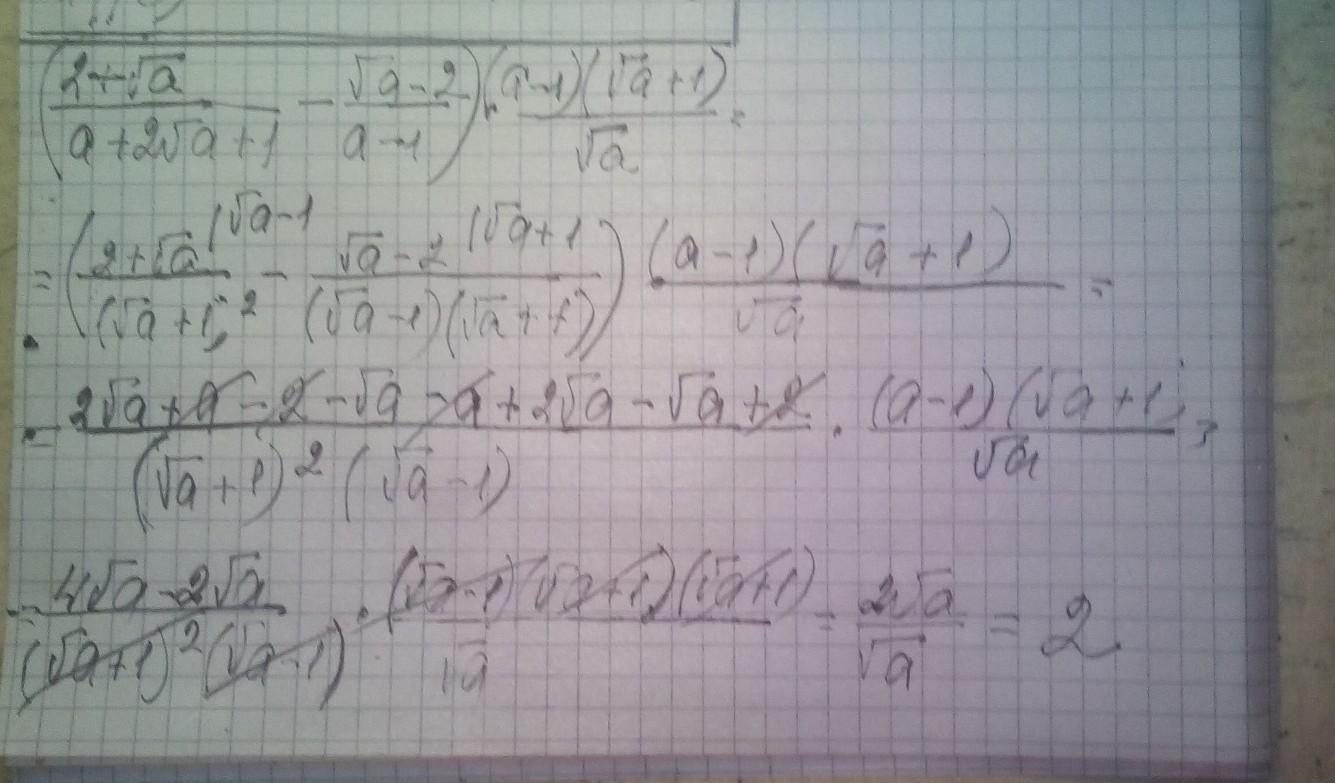 (2+√a / a+2√a+1 − √a−2 / a−1) · (a−1)(√a+1) / √a =
= (2+√a (√a−1 / (√a+1)² − √a−2 (√a+1 / (√a−1)(√a+1)) · (a−1)(√a+1) / √a =
= 2√a+a−2−√a−a+2√a−√a+2 / (√a+1)²(√a−1) · (a−1)(√a+1) / √a =
= 4√a−2√a / (√a+1)²(√a−1) · (√a−1)(√a+1)(√a+1) / √a = 2√a / √a = 2